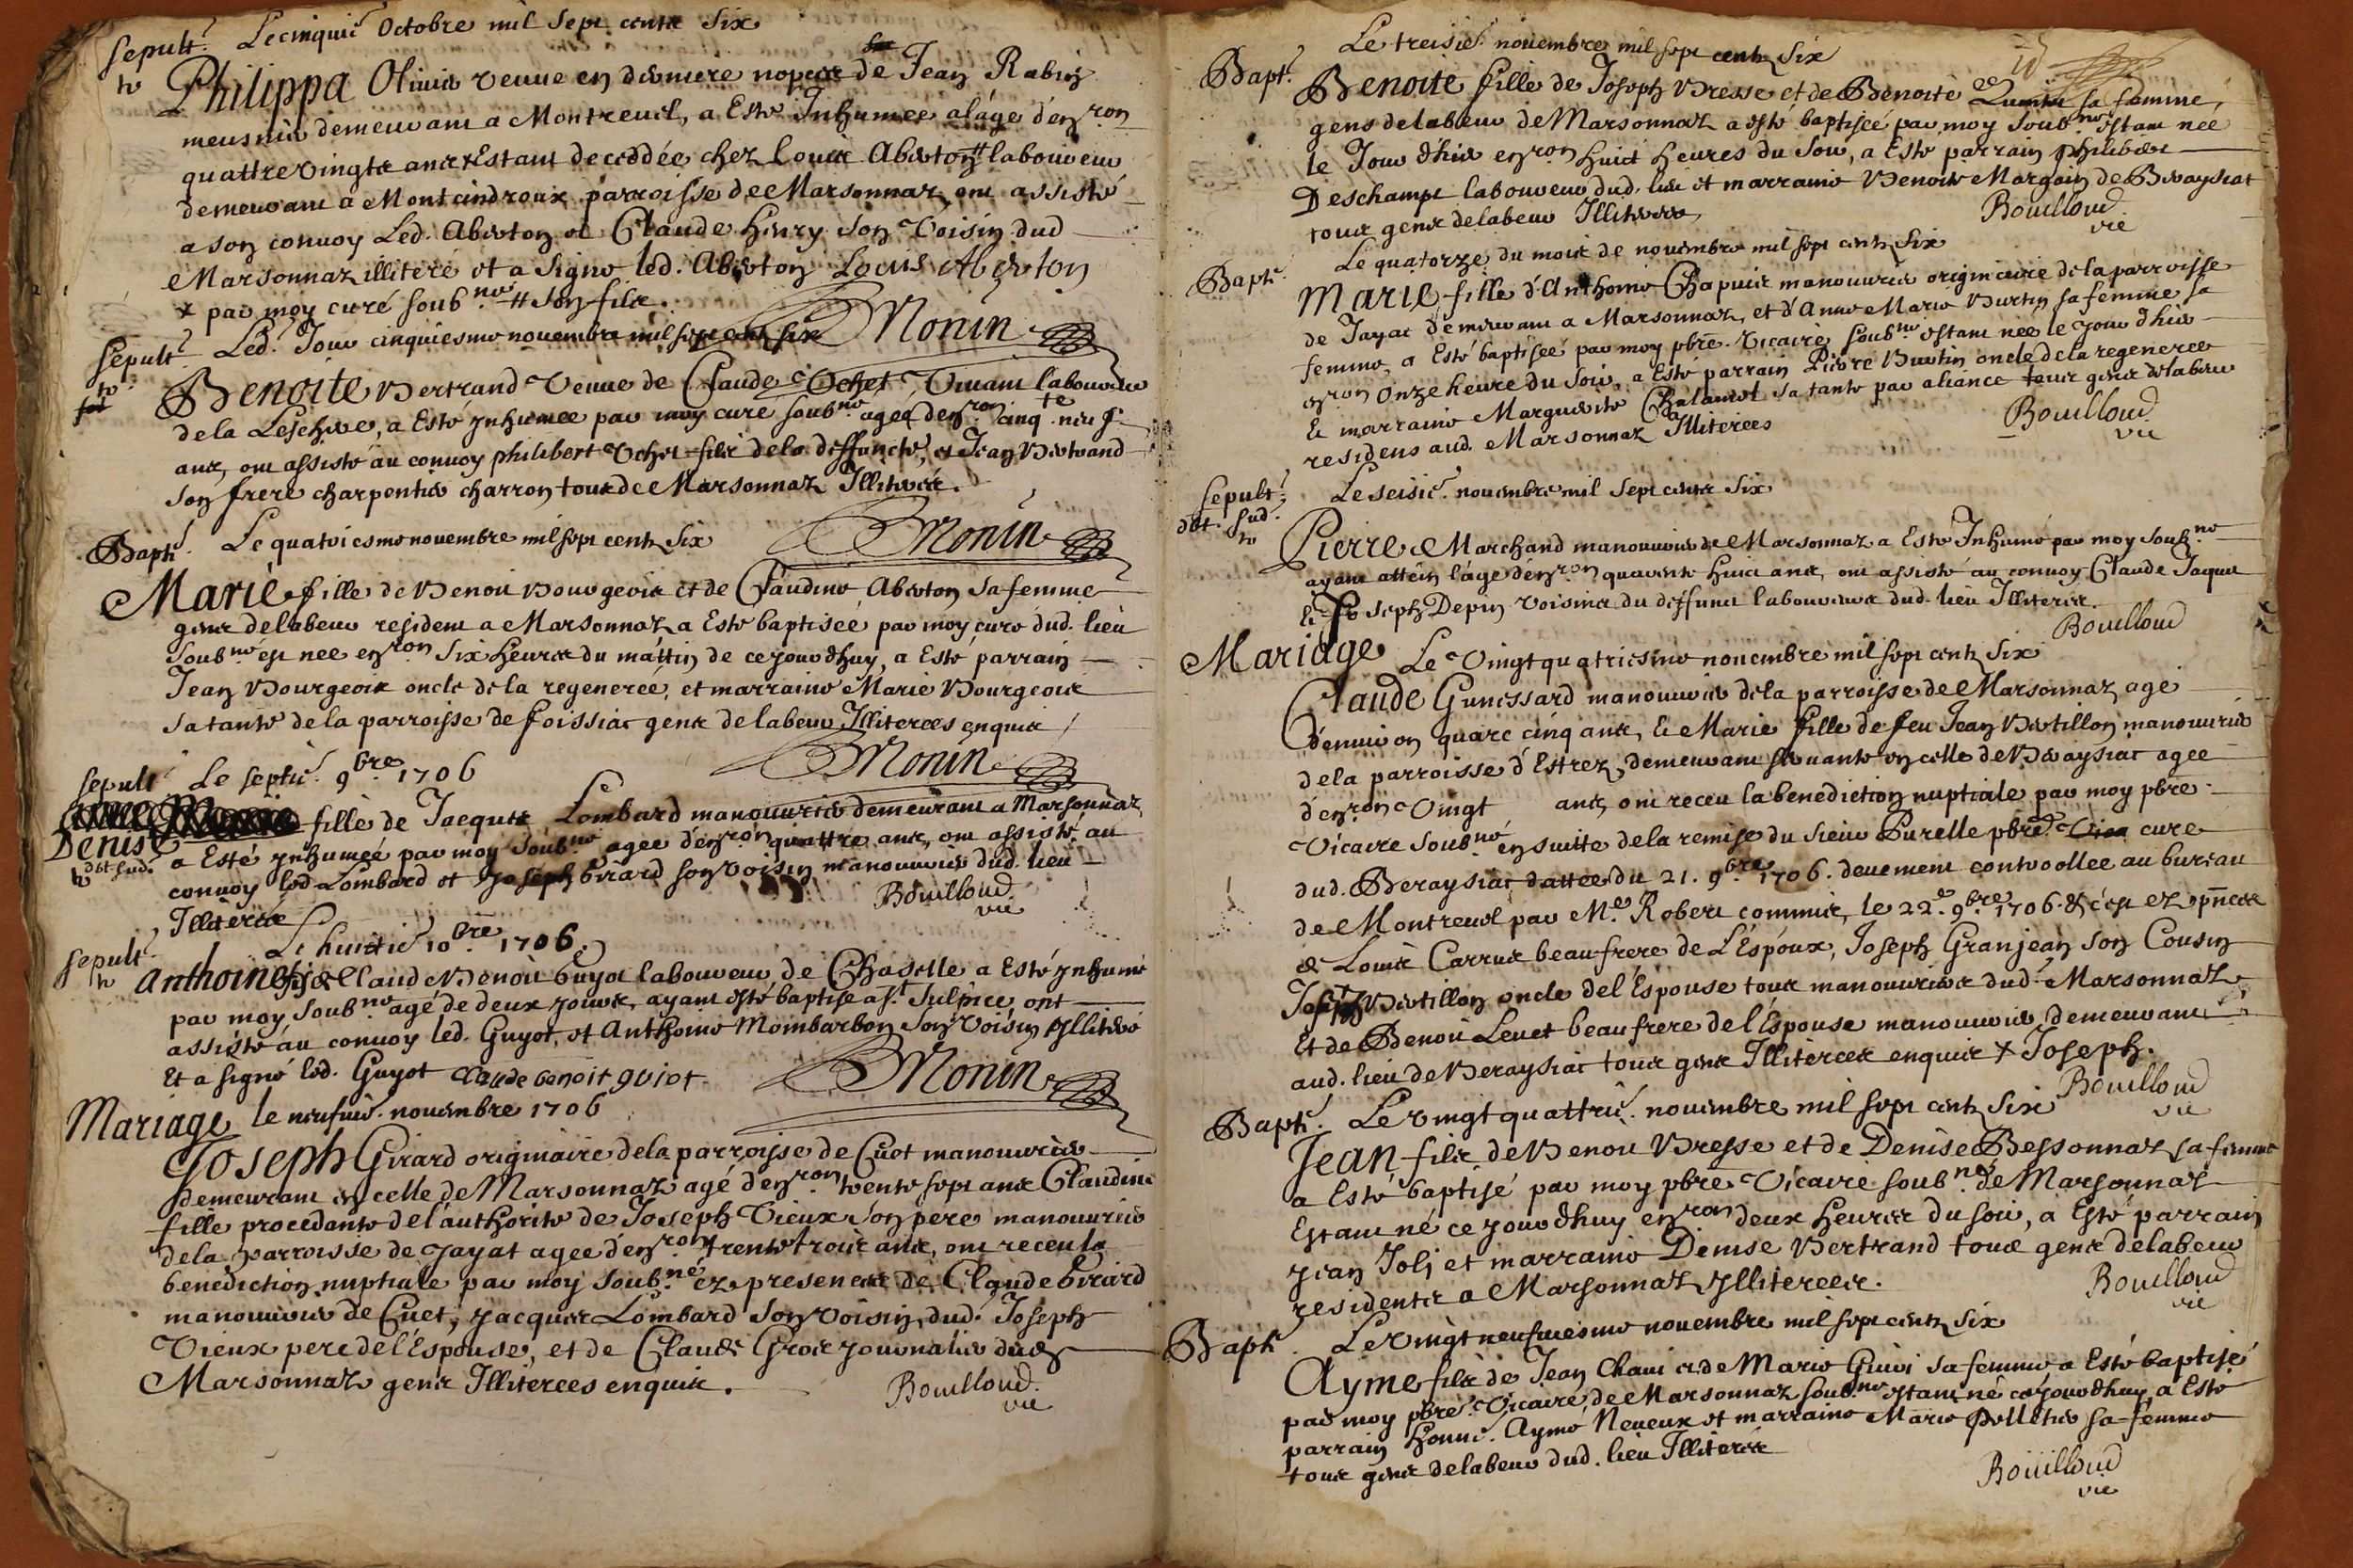 Sepult. Le cinquie. Octobre mil sept cents six
Philippa Olivier veuve en derniere nopces de Jean Rabin
meusnier demeurant a Montreuil, a Esté Inhumée a l'áge d'environ
quattre vingts ans x Estant decedée chez Louis Aberton # laboureur
demeurant a Montcindroux parroisse de Marsonnaz, ont assisté
a son convoy Led. Aberton et Claude Henry son voisin dud
Marsonnaz illiteré et a signé led. Aberton Louis Aberton
x par moy curé soub.né # son fils.
Monin
Sepult. Led. Jour cinquiesme novembre mil sept cents six
Benoite Bertrand veuve de Claude Ochet vivant laboureur
de la Leschere, a Esté ynhumée par moy curé soub.né agée d'env.ron cinq.te neuf
ans, ont assisté au convoy philibert Ochet fils de la deffuncte, et Jean Bertrand
son frere charpentier charron tous de Marsonnaz Illiterés.
Monin
Bapt. Le quatriesme novembre mil sept cents six
Marie fille de Benoit Bourgeois et de Claudine Aberton sa femme
gens de labeur resident a Marsonnaz a Esté baptisée par moy curé dud. lieu
soub.né est nee env.ron six heures du mattin de ce jourdhuy, a Esté parrain
Jean Bourgeois oncle de la regenerée, et marraine Marie Bourgeois
sa tante de la parroisse de foissiac gens de labeur Illiterées enquis
Monin
Sepult Le septie. 9bre 1706
Denise fille de Jacques Lombard manouvrier demeurant a Marsonnaz
a Esté ynhumée par moy soub.né agee d'env.ron quattre ans, ont assisté au
convoy led Lombard et Joseph Girard son voisin manouvrier dud. lieu
Illiterés
Bouilloud
vic
Sepult. Le huictie 10bre 1706
Anthoine fils Claude Benoit Guyot laboureur de Chaselle a Esté ynhumé
par moy soub.né agé de deux jours, ayant esté baptisé a s.t Sulpice, ont
assisté au convoy led. Guyot, et Anthoine Mombarbon son voisin yllitéré
Et a signé led. Guyot claude benoit guiot
Monin
Mariage le neufvie. novembre 1706
Joseph Girard originaire de la parroisse de Cuet manouvrier
demeurant en celle de Marsonnaz agé d'env.ron trente sept ans Claudine
fille procedante de l'authorité de Joseph Vieux son pere manouvrier
de la parroisse de Jayat agee d'env.ron trente trois ans, ont receu la
benediction nuptiale par moy soub.né ez presences de Claude Girard
manouvrier de Cuet, Jacques Lombard son voisin, dud. Joseph
Vieux pere de l'Espouse, et de Claude Gros journalier dud
Marsonnaz gens Illiterées enquis.
Bouilloud.
vic
Le treisie. novembre mil sept cents six
Bapt. Benoite fille de Joseph Bresse et de Benoite sa femme,
gens de labeur de Marsonnaz a esté baptisée par moy soub.né estant née
le Jour d'hier env.ron huict heures du soir, a Esté parrain philibert
Deschamps laboureur dud. lieu et marraine Benoite Morgon de Beraysiat
tous gens de labeur Illiterés
Bouilloud
vic
Bapt. Le quatorze du mois de novembre mil sept cents six
Marie fille d'Anthoine Chapuis manouvrier originaire de la parroisse
de Jayat demeurant a Marsonnaz, et d'Anne Marie Burtin sa femme sa
femme, a Esté baptisée par moy pbre. vicaire soub.né estant née le jour d'hier
env.ron onze heure du soir, a Esté parrain Pierre Burtin oncle de la regenerée
Et marraine Marguerite Chalamet sa tante par aliance tous gens de labeur
residens aud. Marsonnaz Illiterées
Bouilloud
vic
Sepult. Le seisie. novembre mil sept cents six
Pierre Marchand manouvrier de Marsonnaz a Esté Inhumé par moy soub.né
ayant attein l'áge d'env.ron quarente huict ans, ont assisté au convoy Claude Jaquet
Et Joseph Depin voisins du deffunct laboureurs dud. lieu Illiterés.
Bouilloud
Mariage Le vingt quatriesme novembre mil sept cents six
Claude Gunessard manouvrier de la parroisse de Marsonnaz, agé
d'environ quare cinq ans, Et Marie fille de feu Jean Bertillon manouvrier
de la parroisse d'Estrez, demeurant servante en celle de Beraysiat agee
d'env.ron vingt ans, ont receu la benediction nuptiale par moy pbre
vicaire soub.né ensuitte de la remise du sieur Purelle pbre. curé
dud. Beraysiat dattée du 21. 9bre 1706. deuement controollee au bureau
de Montreuil par M.e Robert commis, le 22.e 9bre 1706. & c'est ez pñces
de Louis Carrus beaufrere de L'Espoux, Joseph Granjean son Cousin
Bertillon oncle de l'Espouse tous manouvriers dud. Marsonnaz
Et de Benoit Levet beaufrere de l'Espouse manouvrier demeurant
aud. lieu de Beraysiat tous gens Illiterées enquis x Joseph.
Bouilloud
vic
Bapt. Le vingt quattrie. novembre mil sept cents six
Jean fils de Benoit Bresse et de Denise Bessonnaz sa femme
a Esté baptisé par moy pbre vicaire soub.né de Marsonnaz
Estant né ce jourdhuy env.ron deux heures du soir, a Esté parrain
Jean Joli et marraine Denise Bertrand tous gens de labeur
residents a Marsonnaz yllitérées.
Bouilloud
vic
Bapt. Le vingt neufviesme novembre mil sept cents six
Ayme fils de Jean Chani et de Marie Guivi sa femme a Esté baptisé
par moy pbre. vicaire de Marsonnaz soub.né estant né ce jourdhuy a Esté
parrain honn. Aymé Neveux et marraine Marie Pelletier sa femme
tous gens de labeur dud. lieu Illiterés
Bouilloud
vic